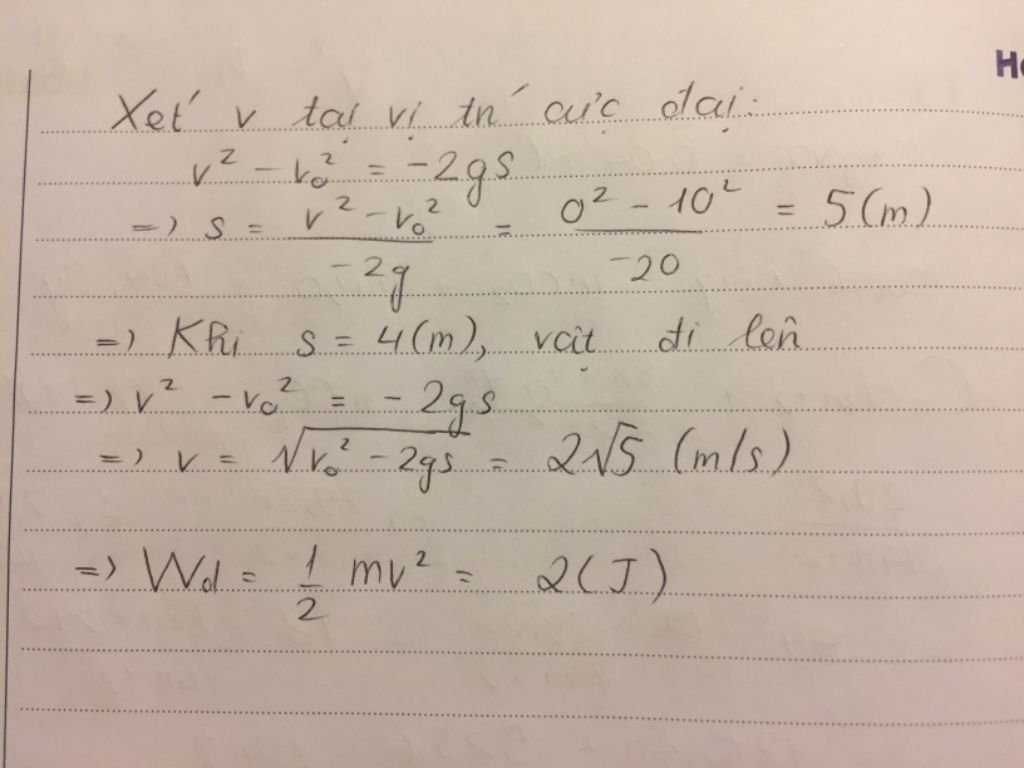 Ho
Xét v tại vị trí cực đại:
v² - v₀² = -2gs
=> s = (v² - v₀²)/(-2g) = (0² - 10²)/(-20) = 5(m)
=> Khi s = 4(m), vật đi lên
=> v² - v₀² = - 2gs
=> v = √(v₀² - 2gs) = 2√5 (m/s)
=> Wd = 1/2 mv² = 2(J)